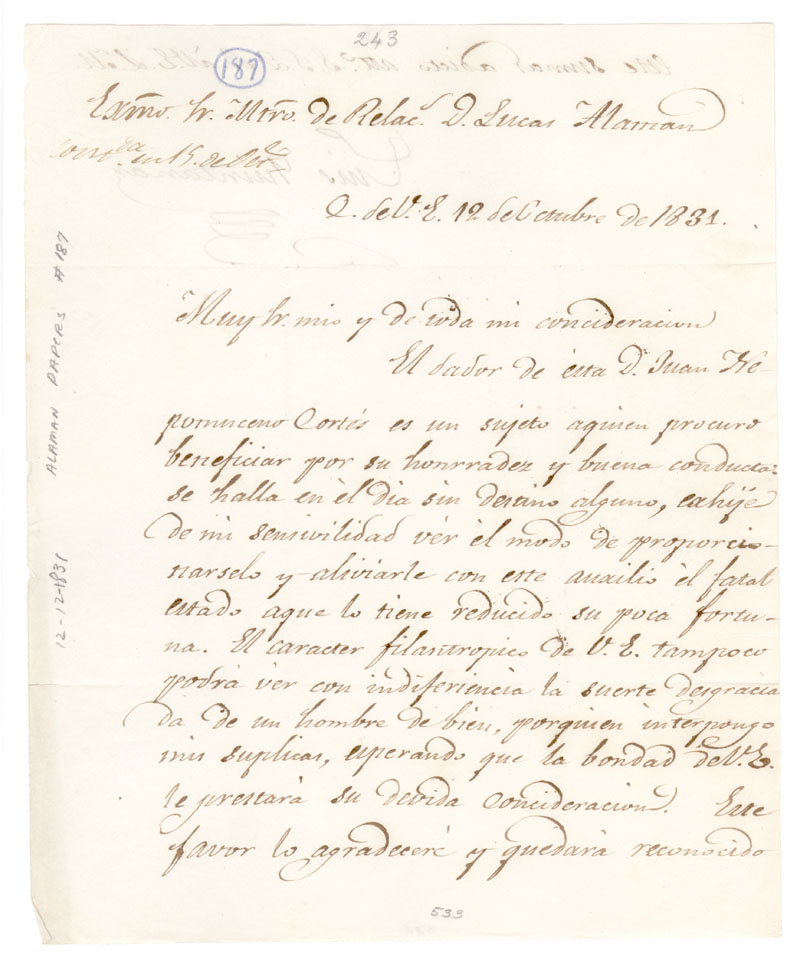 243
187
Exmo. Sr. Mtro. de Relac.s D. Lucas Alaman
en 15. de
C. de V. E. 12 de Octubre de 1831.
Muy Sr. mio y de toda mi concideracion
El dador de ésta D.n Juan Ne-
pomuceno Cortés es un sujeto aquien procuro
beneficiar por su honrradez y buena conducta:
se halla en èl dia sin destino alguno, exhije
de mi sensivilidad vèr èl modo de proporcio-
narselo y aliviarle con este auxilio èl fatal
estado aque lo tiene reducido su poca fortu-
na. El caracter filantropico de V. E. tampoco
podrà vèr con indiferiencia la suerte desgracia
da de un hombre de bien, porquien interpongo
mis suplicas, esperando que la bondad de V. E.
le prestarà su devida concideracion. Este
favor lo agradeceré y quedarà reconocido
533
ALAMAN PAPERS # 187
12-12-1831